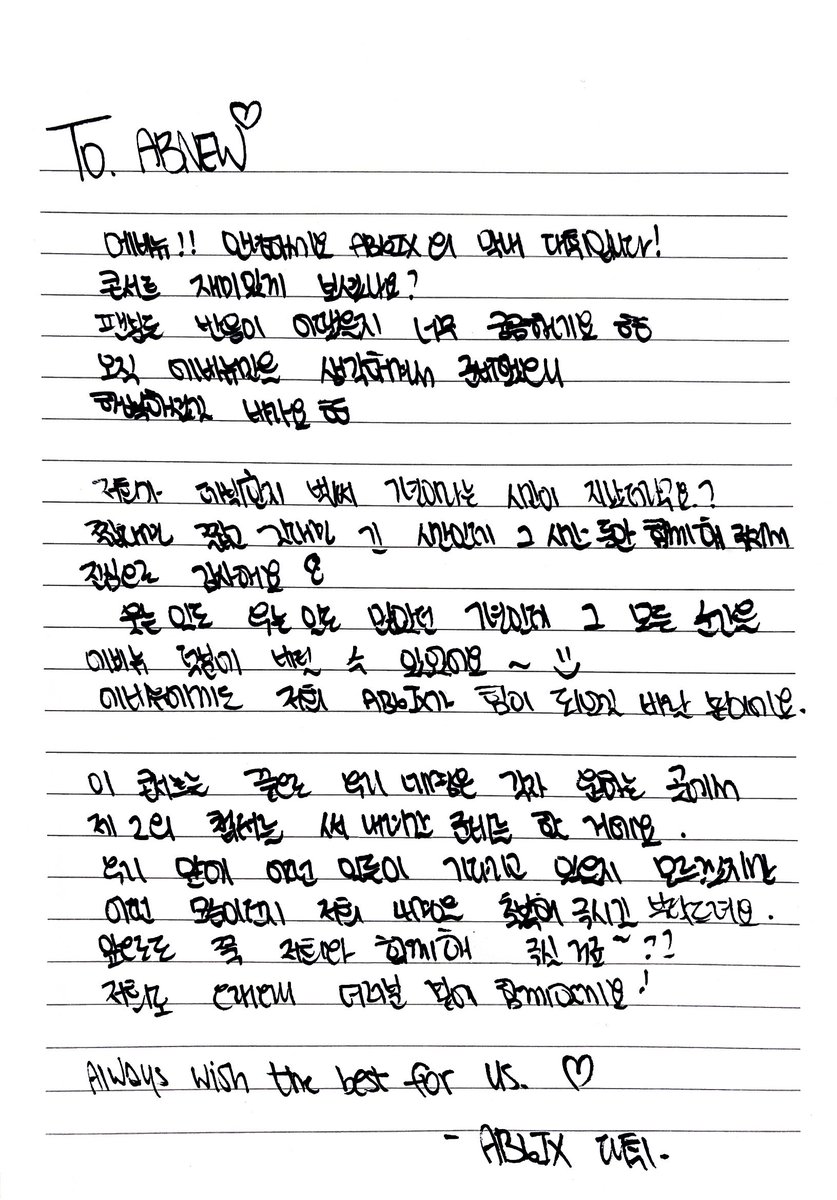 To. ABNEW♡
에비뉴!! 안녕하세요 AB6IX의 막내 대휘입니다!
콘서트 재미있게 보셨나요?
팬분들 반응이 어땠을지 너무 궁금하네요 ㅎㅎ
오직 에비뉴만을 생각하면서 준비했으니
행복하셨길 바라요 ㅎㅎ
저희가 데뷔한지 벌써 7년이라는 시간이 지났더라구요?
짧다면 짧고 길다면 긴 시간인데 그 시간동안 함께해 주셔서
진심으로 감사해요
웃는 일도 우는 일도 많았던 7년인데 그 모든 순간을
에비뉴 덕분에 버틸 수 있었어요~ :)
에비뉴에게도 저희 AB6IX가 힘이 되었길 바랄 뿐이에요.
이 콘서트를 끝으로 우리 네명은 각자 원하는 곳에서
제 2의 챕터를 써 내려갈 준비를 할 거에요.
우리 앞에 어떤 일들이 기다리고 있을지 모르겠지만
어떤 모습이던지 저희 네명은 축복해 주시길 부탁드려요.
앞으로도 꼭 저희와 함께해 주실거죠~??
저희도 언제나 여러분 곁에 함께할게요!
Always wish the best for us. ♡
- AB6IX 대휘.